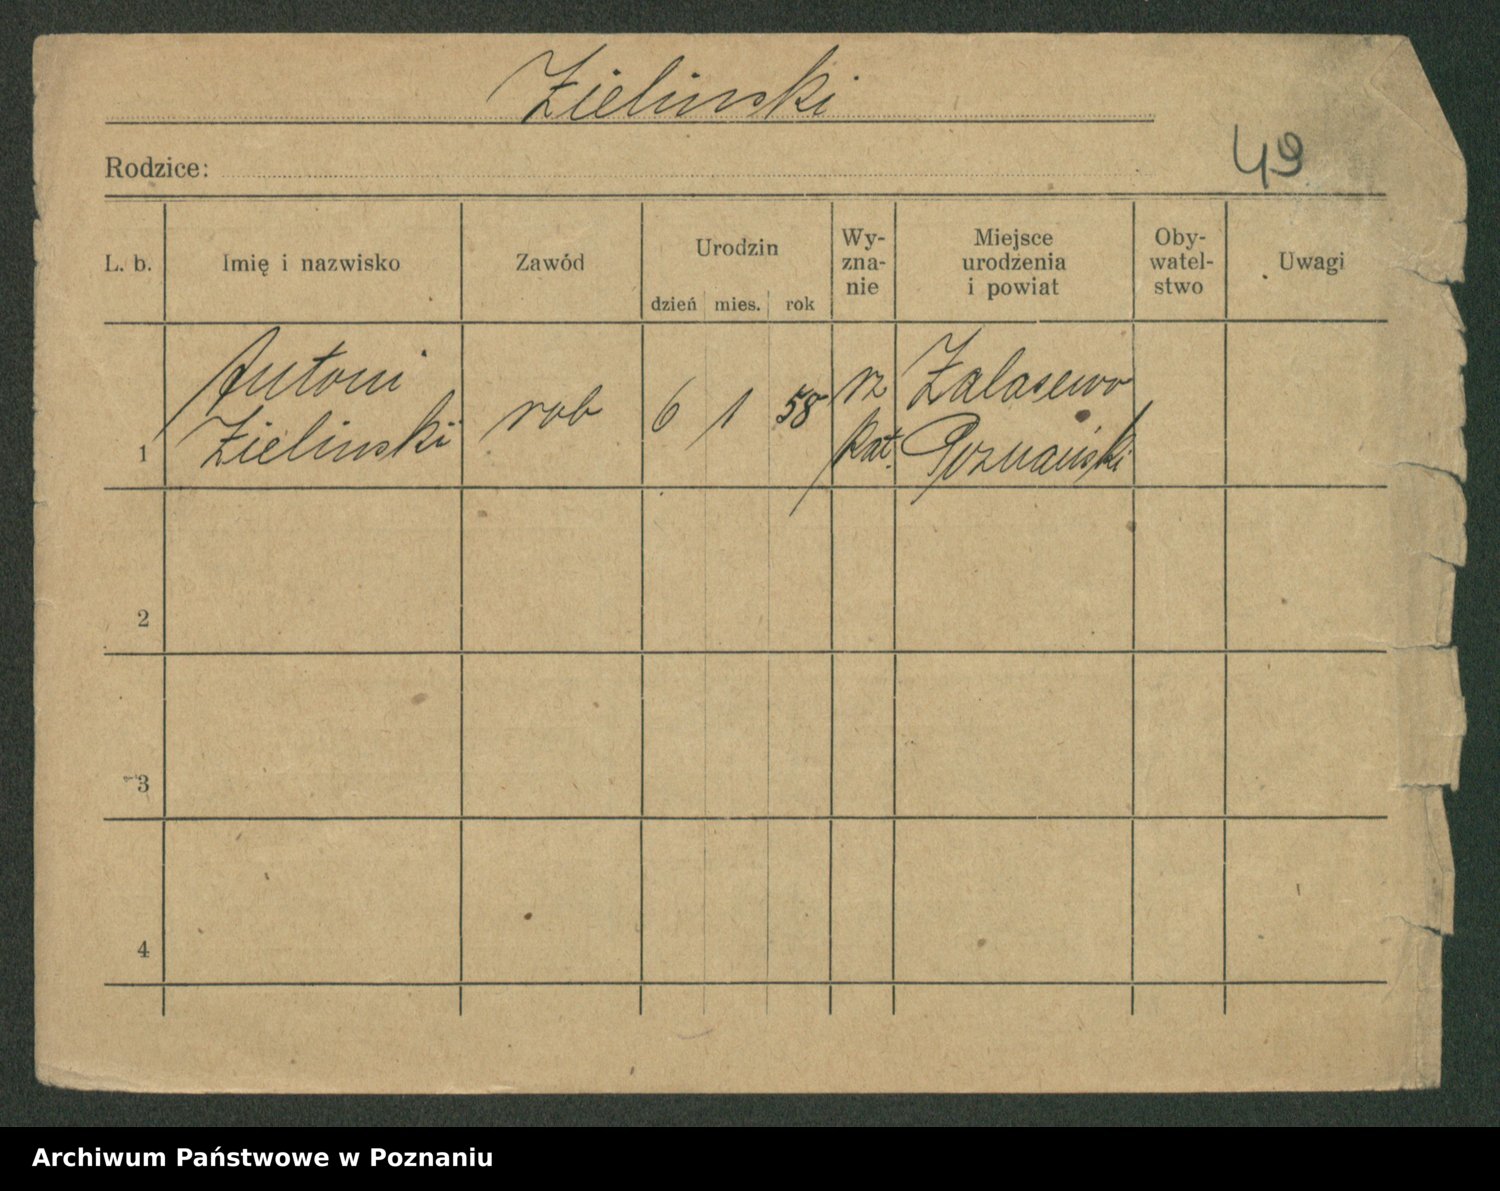 Zielinski
49
Rodzice:
L. b. Imię i nazwisko Zawód Urodzin dzień mies. rok Wy-zna-nie Miejsce urodzenia i powiat Oby-watel-stwo Uwagi
Antoni
Zielinski
1 rob 6 1 58 rz kat. Zalasewo
Poznański
2
3
4
Archiwum Państwowe w Poznaniu